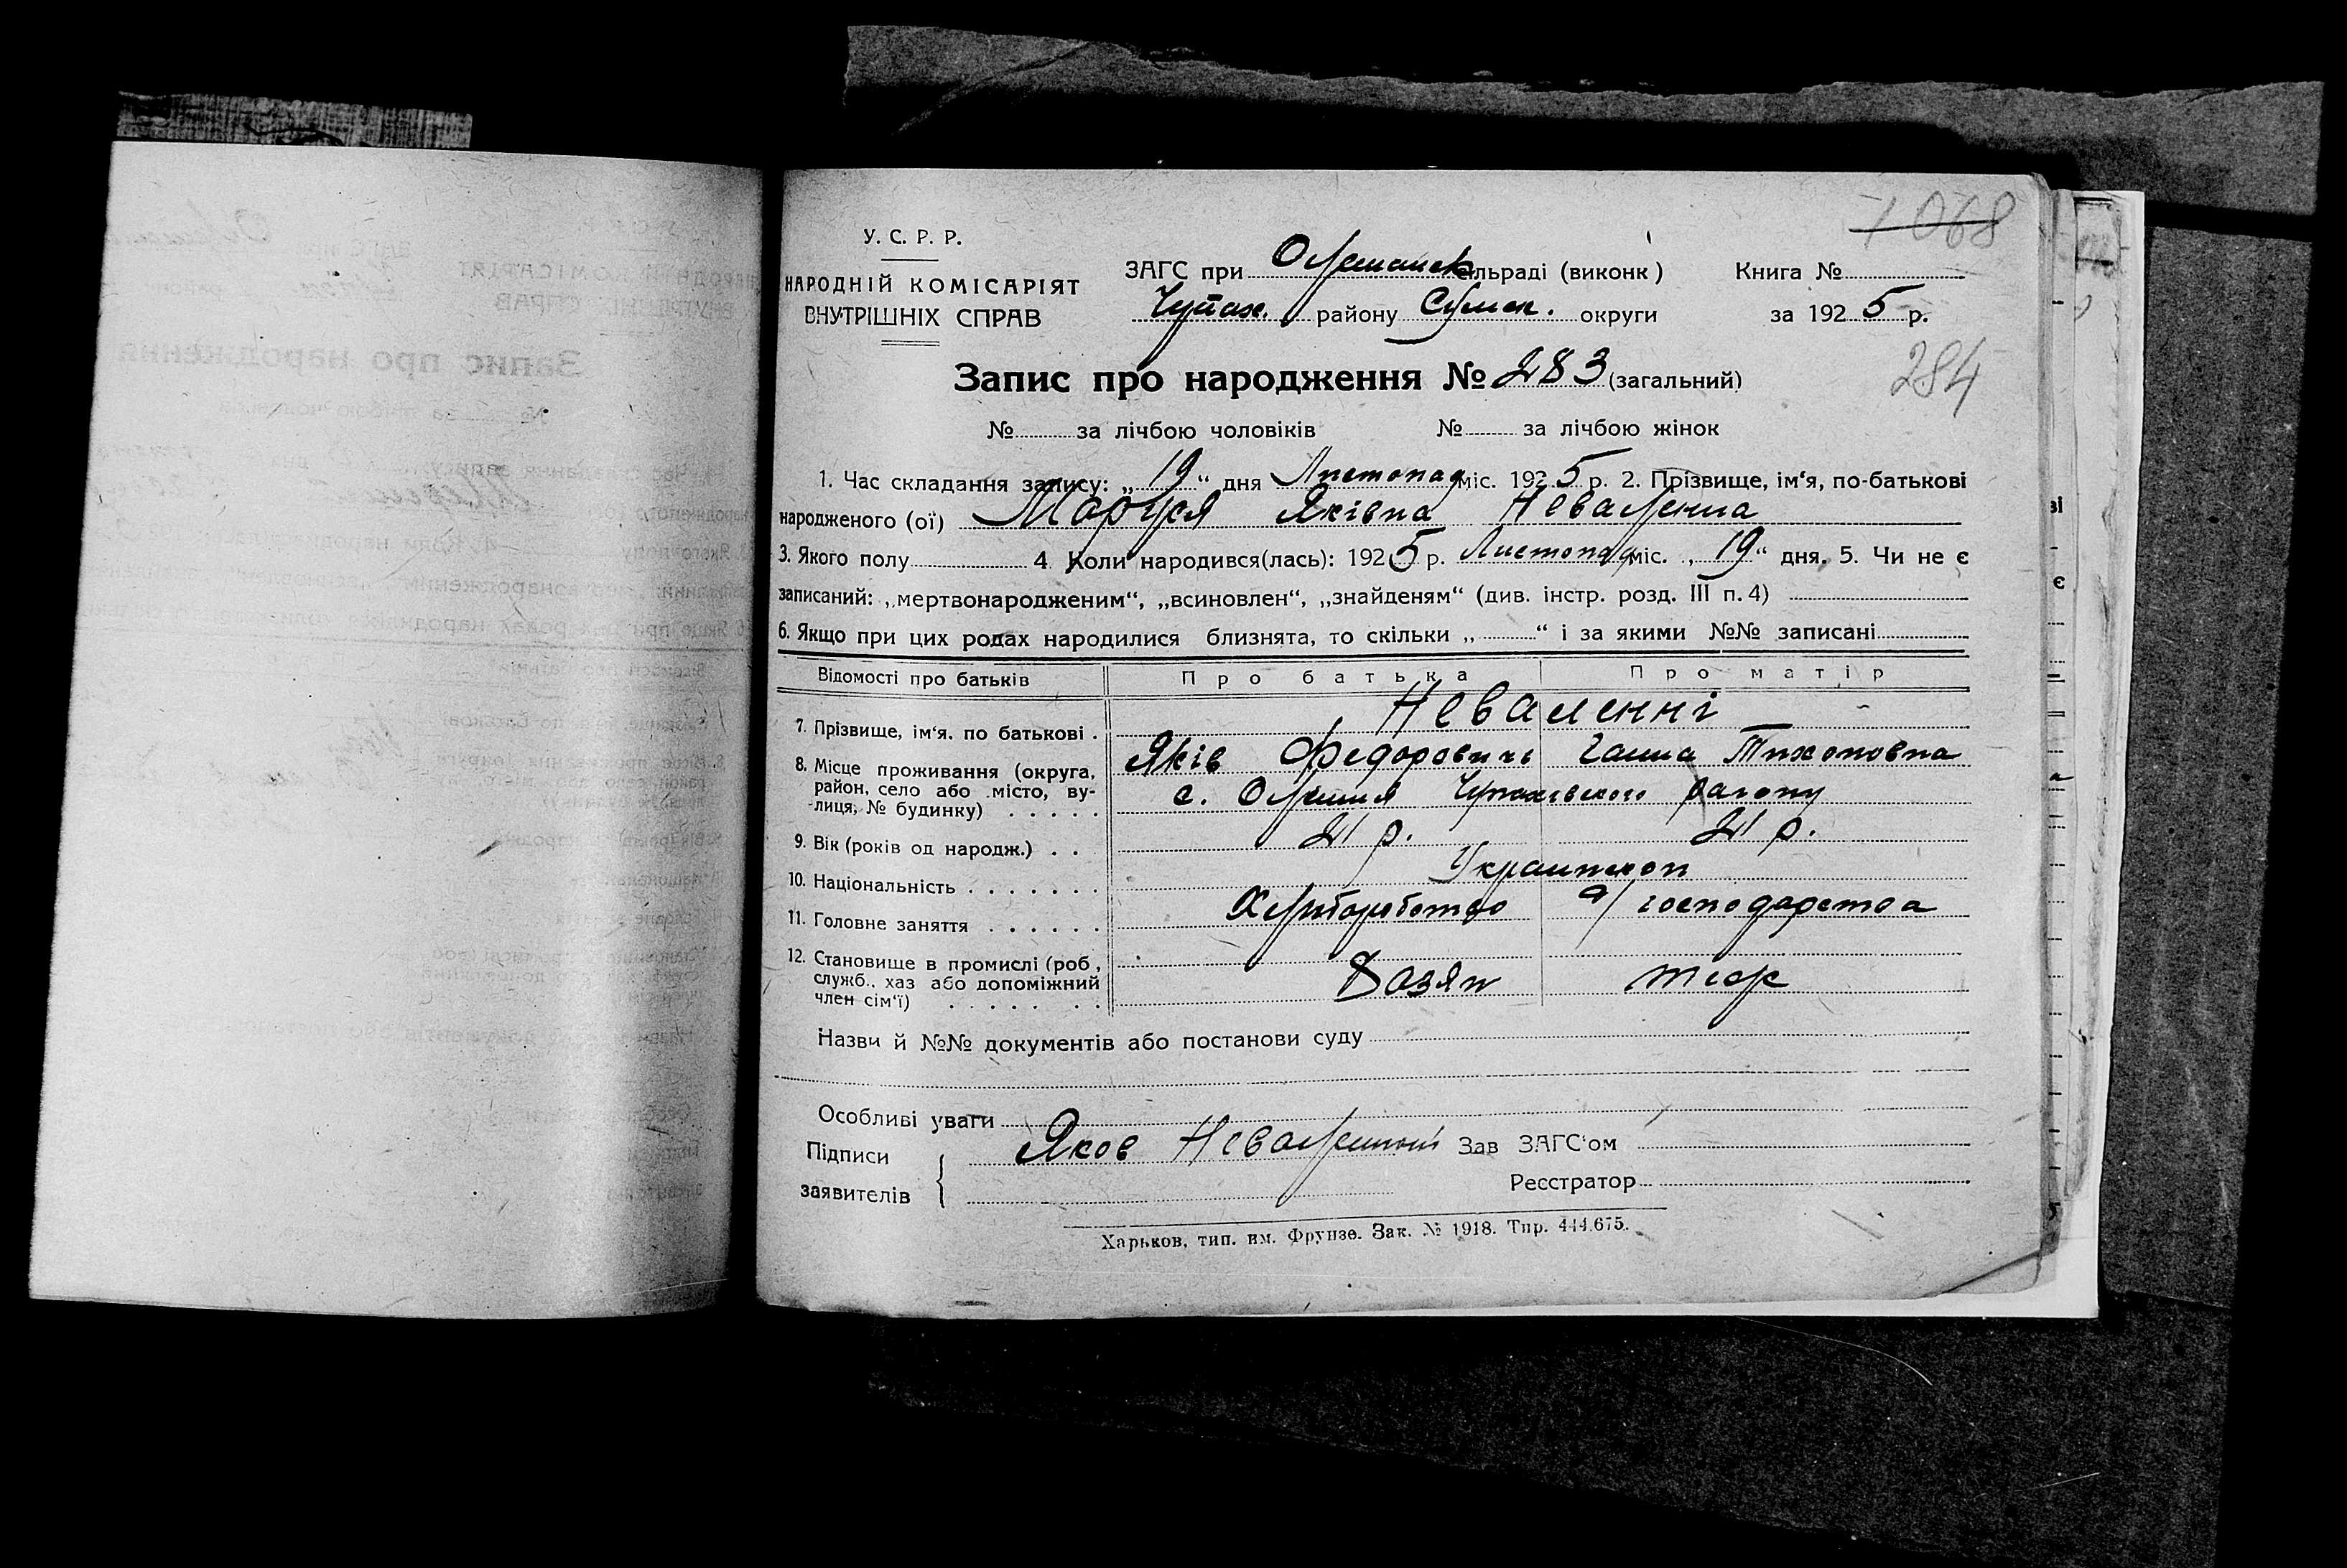 7068
У. С. Р. Р.
НАРОДНІЙ КОМІСАРІЯТ
ВНУТРІШНІХ СПРАВ
ЗАГС при Олешанськ сільраді (виконк) Книга №
Чупах. району Сумск. округи за 1925 р.
Запис про народження № 283 (загальний)
284
№ за лічбою чоловіків № за лічбою жінок
1. Час складання запису: „19“ дня Листопад міс. 1925 р. 2. Прізвище, ім‘я, по-батькові
народженого (ої) Маруся Яківна Невалєнна
3. Якого полу 4. Коли народився(лась): 1925 р. Листопад міс. „19“ дня. 5. Чи не є
записаний: „мертвонародженим“, „всиновлен“, „знайденям“ (див. інстр. розд. III п. 4)
6. Якщо при цих родах народилися близнята, то скільки „ “ і за якими №№ записані
Відомості про батьків Про батька Про матір
7. Прізвище, ім‘я. по батькові . Неваленні
Яків Федорович Ганна Тихоновна
8. Місце проживання (округа,
район, село або місто, ву-
лиця, № будинку) . . . . . с. Олешня Чупахівського району
9. Вік (років од народж.) . . 21 р. 21 р.
10. Національність . . . . . . . Украинской
11. Головне заняття . . . . . . Хліборобство д/господарства
12. Становище в промислі (роб.,
служб., хаз або допоміжний
член сім‘ї) . . . . . . . Хозяін
Назви й №№ документів або постанови суду
Особливі уваги
Підписи
заявителів
Яков Зав ЗАГС‘ом
Реєстратор
Харьков, тип. им. Фрунзе. Зак. № 1918. Тир. 444.675.